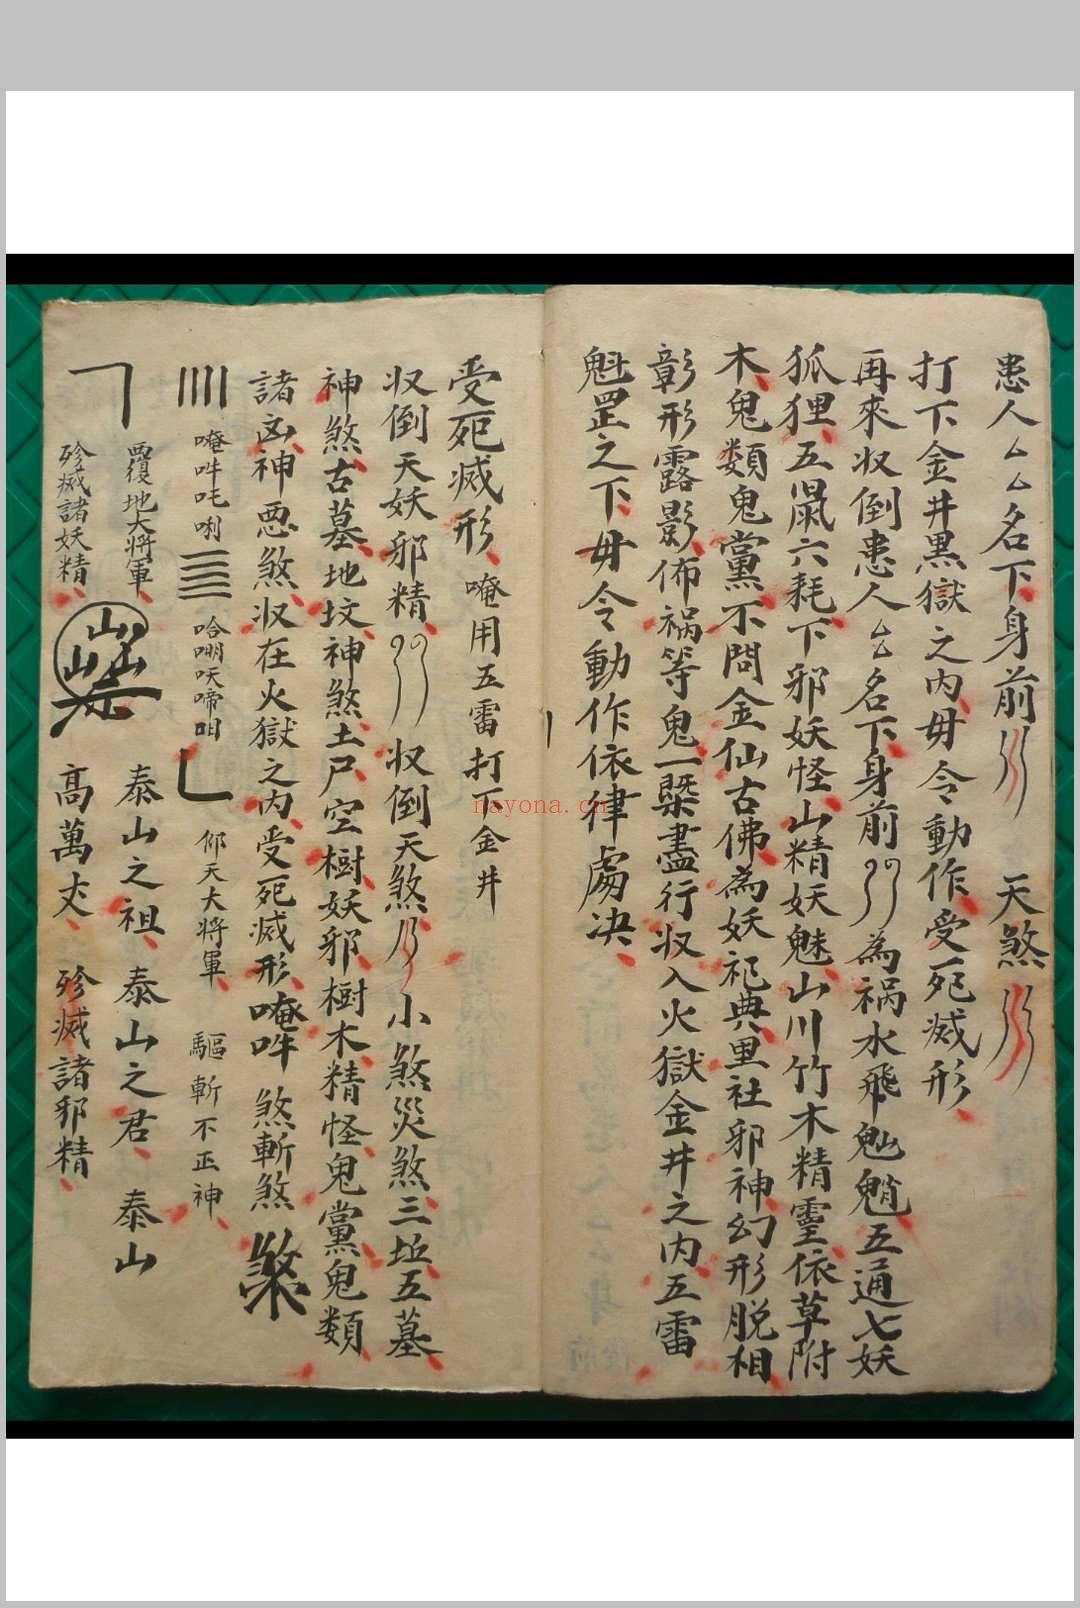 患人厶厶名下身前 天煞
打下金井黑獄之内毋令動作受死滅形
再來収倒患人厶厶名下身前 為禍水飛魈五通七妖
狐狸五鼠六耗下邪妖怪山精妖魅山川竹木精靈依草附
木鬼類鬼黨不問金仙古佛為妖祀典里社邪神幻形脫相
彰形露影佈禍等鬼一槩盡行収入火獄金井之内五雷
魁罡之下毋令動作依律處决
受死滅形唵用五雷打下金井
収倒天妖邪精 収倒天煞 小煞災煞三坵五墓
神煞古墓地坟神煞土尸空樹妖邪樹木精怪鬼黨鬼類
諸凶神惡煞収在火獄之内受死滅形唵吽 煞斬煞
唵吽吒唎 哈嘲吠啼呾 仰天大將軍 驅斬不正神
覆地大將軍 泰山之祖 泰山之君 泰山
殄滅諸妖精 高萬丈 殄滅諸邪精
nayona.cn